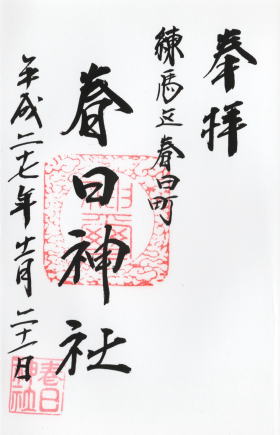 奉拝
練馬区春日町
春日神社
平成二十七年十一月二十一日
春日神社